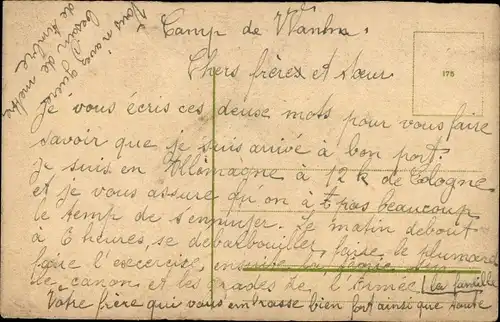 Camp de Wanha.
Chers frères et sœur
je vous écris ces deuse mots pour vous faire
savoir que je suis arrivé à bon port.
je suis en Allemagne à 12 k de Cologne
et je vous assure qu'on à pas beaucoup
le temp de s'ennuyer. Le matin debout
à 6 heures, se débarbouiller, faire le plumard
faire l'exercice, ensuite
de canon et les grades de l'Armée
(la famille
Votre frère qui vous embrasse bien fort ainsi que toute
Vous n'avez guère
besoin de mettre
de timbre
178